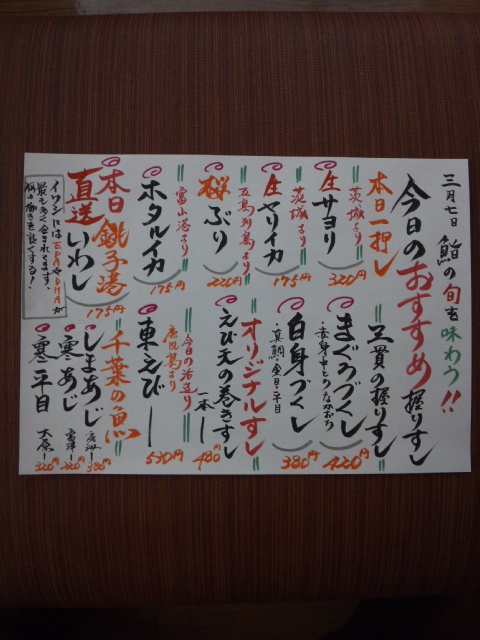 三月七日 鮨の旬を味わう!!
今日のおすすめ握りすし
本日一押し
茨城より
生サヨリ
320円
茨城より
生ヤリイカ
175円
五島列島より
桜ぶり
220円
富山湾より
ホタルイカ
175円
本日銚子港
直送いわし
175円
イワシはEPA・DHAが
最も多く含まれてます、
脳の働きを良くする!
三貫の握りすし
まぐろづくし
・赤身・中とろ・なかおち
420円
白身づくし
・真鯛・金目・平目
380円
オリジナルすし
えび天の巻きすし
一本ー
480円
今日の活造り
鹿児島より
車えびー
530円
千葉の魚
しまあじ
380円
寒あじ 富津ー
220円
寒平目 大原ー
320円